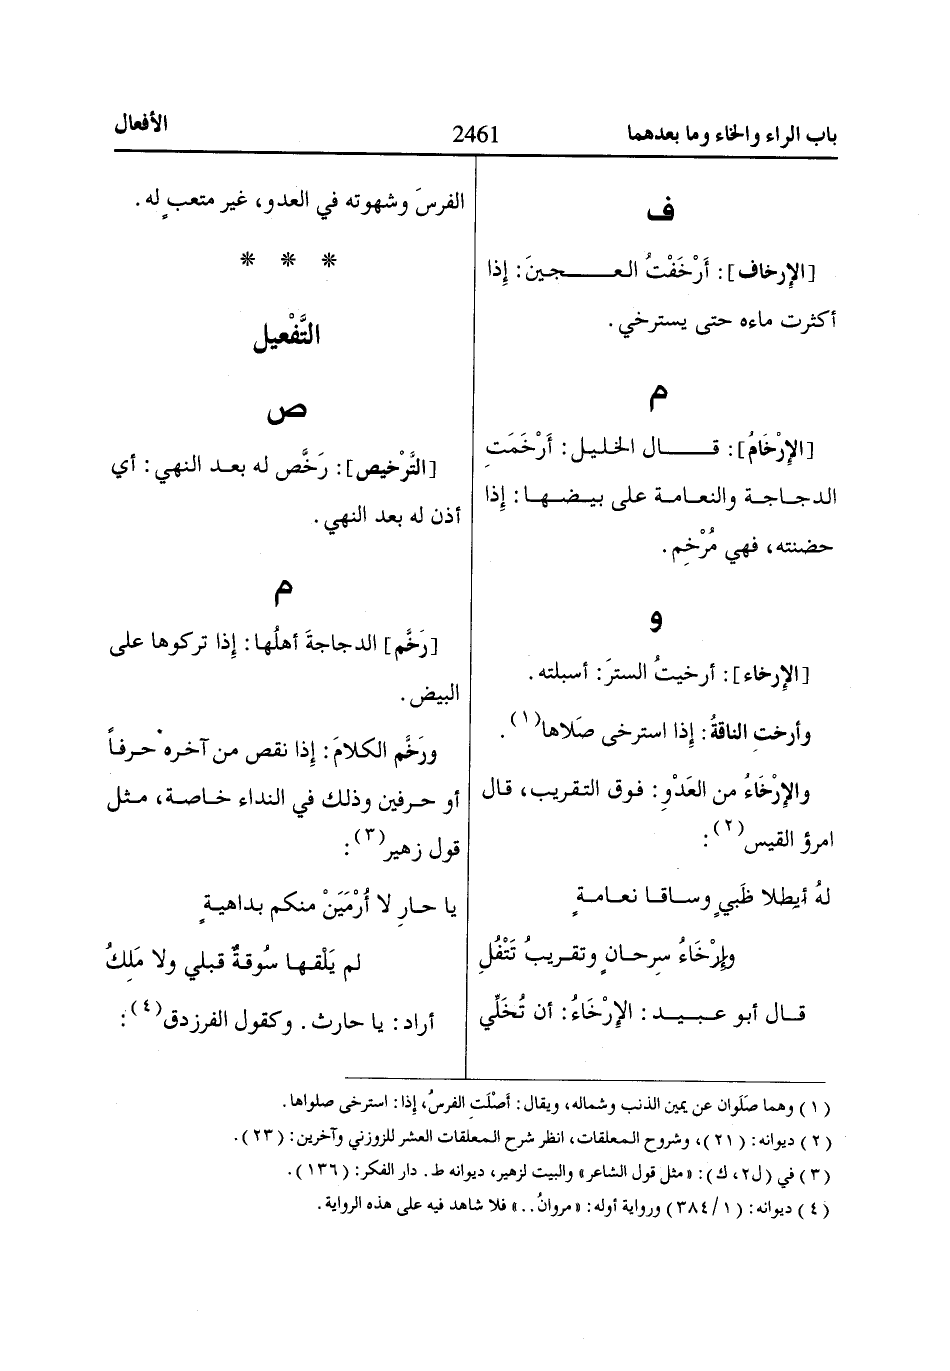 باب الراء والخاء وما بعدهما
2461
الأفعال
ف
[الإرخاف]: أَرْخَفْتُ العـــــجينَ: إِذا
أكثرت ماءه حتى يسترخي.
م
[الإِرْخَامُ]: قـــــال الخليل: أَرْخَمَتِ
الدجاجة والنعامة على بيضها: إِذا
حضنته، فهي مُرْخِم.
و
[الإِرخاء]: أرخيتُ السترَ: أسبلته.
وأرختِ الناقةُ: إِذا استرخى صَلاها(١).
والإِرْخَاءُ من العَدْوِ: فوق التقريب، قال
امرؤ القيس(٢):
لهُ أيطلا ظَبيٍ وساقا نعامةٍ
وإِرْخَاءُ سِرحانٍ وتقريبُ تَتْفُلِ
قال أبو عبيد: الإِرْخَاءُ: أن تُخَلِّي
الفرسَ وشهوته في العدو، غير متعبٍ له.
* * *
التَّفْعيل
ص
[التَّرْخيص]: رَخَّص له بعد النهي: أي
أذن له بعد النهي.
م
[رَخَّم] الدجاجةَ أهلُها: إِذا تركوها على
البيض.
ورَخَّم الكلامَ: إِذا نقص من آخره حرفاً
أو حرفين وذلك في النداء خاصة، مثل
قول زهير(٣):
يا حارِ لا أُرْمَيَنْ منكم بداهيةٍ
لم يَلْقها سُوقةٌ قبلي ولا مَلِكُ
أراد: يا حارث. وكقول الفرزدق(٤):
(١) وهما صَلَوان عن يمين الذنب وشماله، ويقال: أَصْلَتِ الفرسُ، إِذا: استرخى صلواها.
(٢) ديوانه: (٢١)، وشروح المعلقات، انظر شرح المعلقات العشر للزوزني وآخرين: (٢٣).
(٣) في (ل٢، ك): «مثل قول الشاعر» والبيت لزهير، ديوانه ط. دار الفكر: (١٣٦).
(٤) ديوانه: (٣٨٤/١) ورواية أوله: «مروانُ..» فلا شاهد فيه على هذه الرواية.